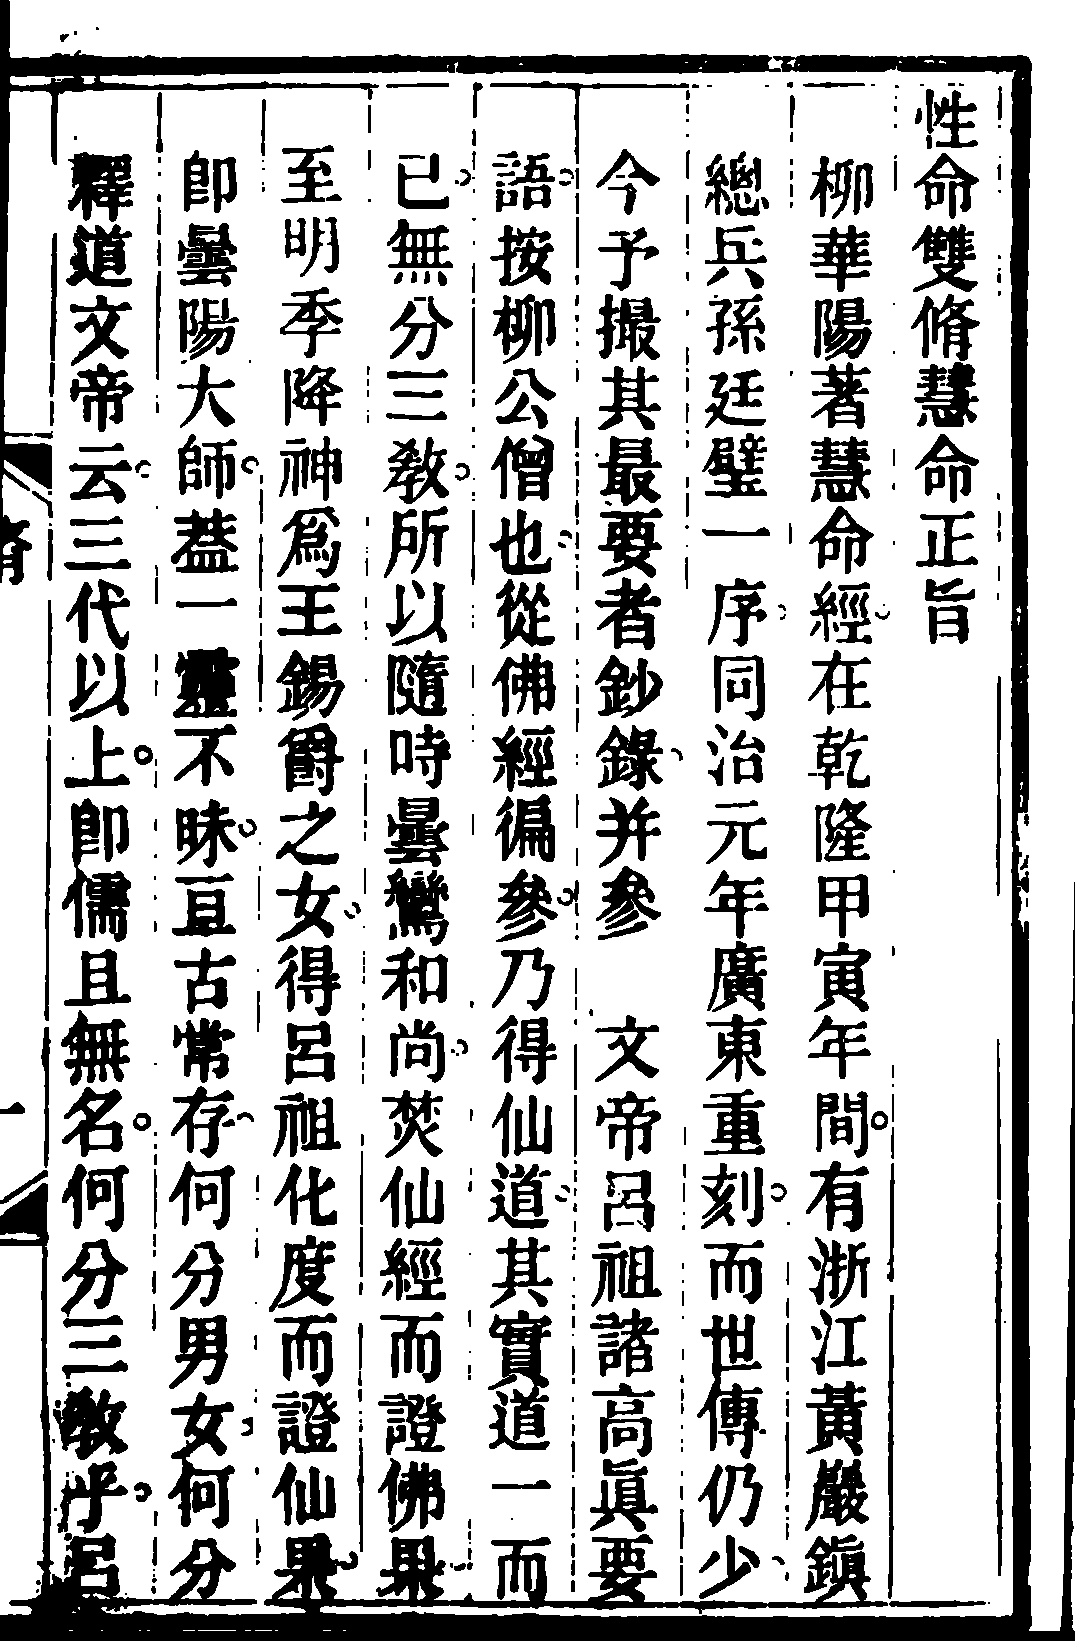 性命雙脩慧命正旨
柳華陽著慧命經在乾隆甲寅年間有浙江黃嚴鎭
總兵孫廷璧一序同治元年廣東重刻而世傳仍少
今予撮其最要者鈔錄并參　文帝呂祖諸高眞要
語按柳公僧也從佛經徧參乃得仙道其實道一而
已無分三教所以隨時曇鸞和尚焚仙經而證佛果
至明季降神爲王錫爵之女得呂祖化度而證仙果
卽曇陽大師葢一靈不昧亘古常存何分男女何分
釋道文帝云三代以上卽儒且無名何分三教乎呂